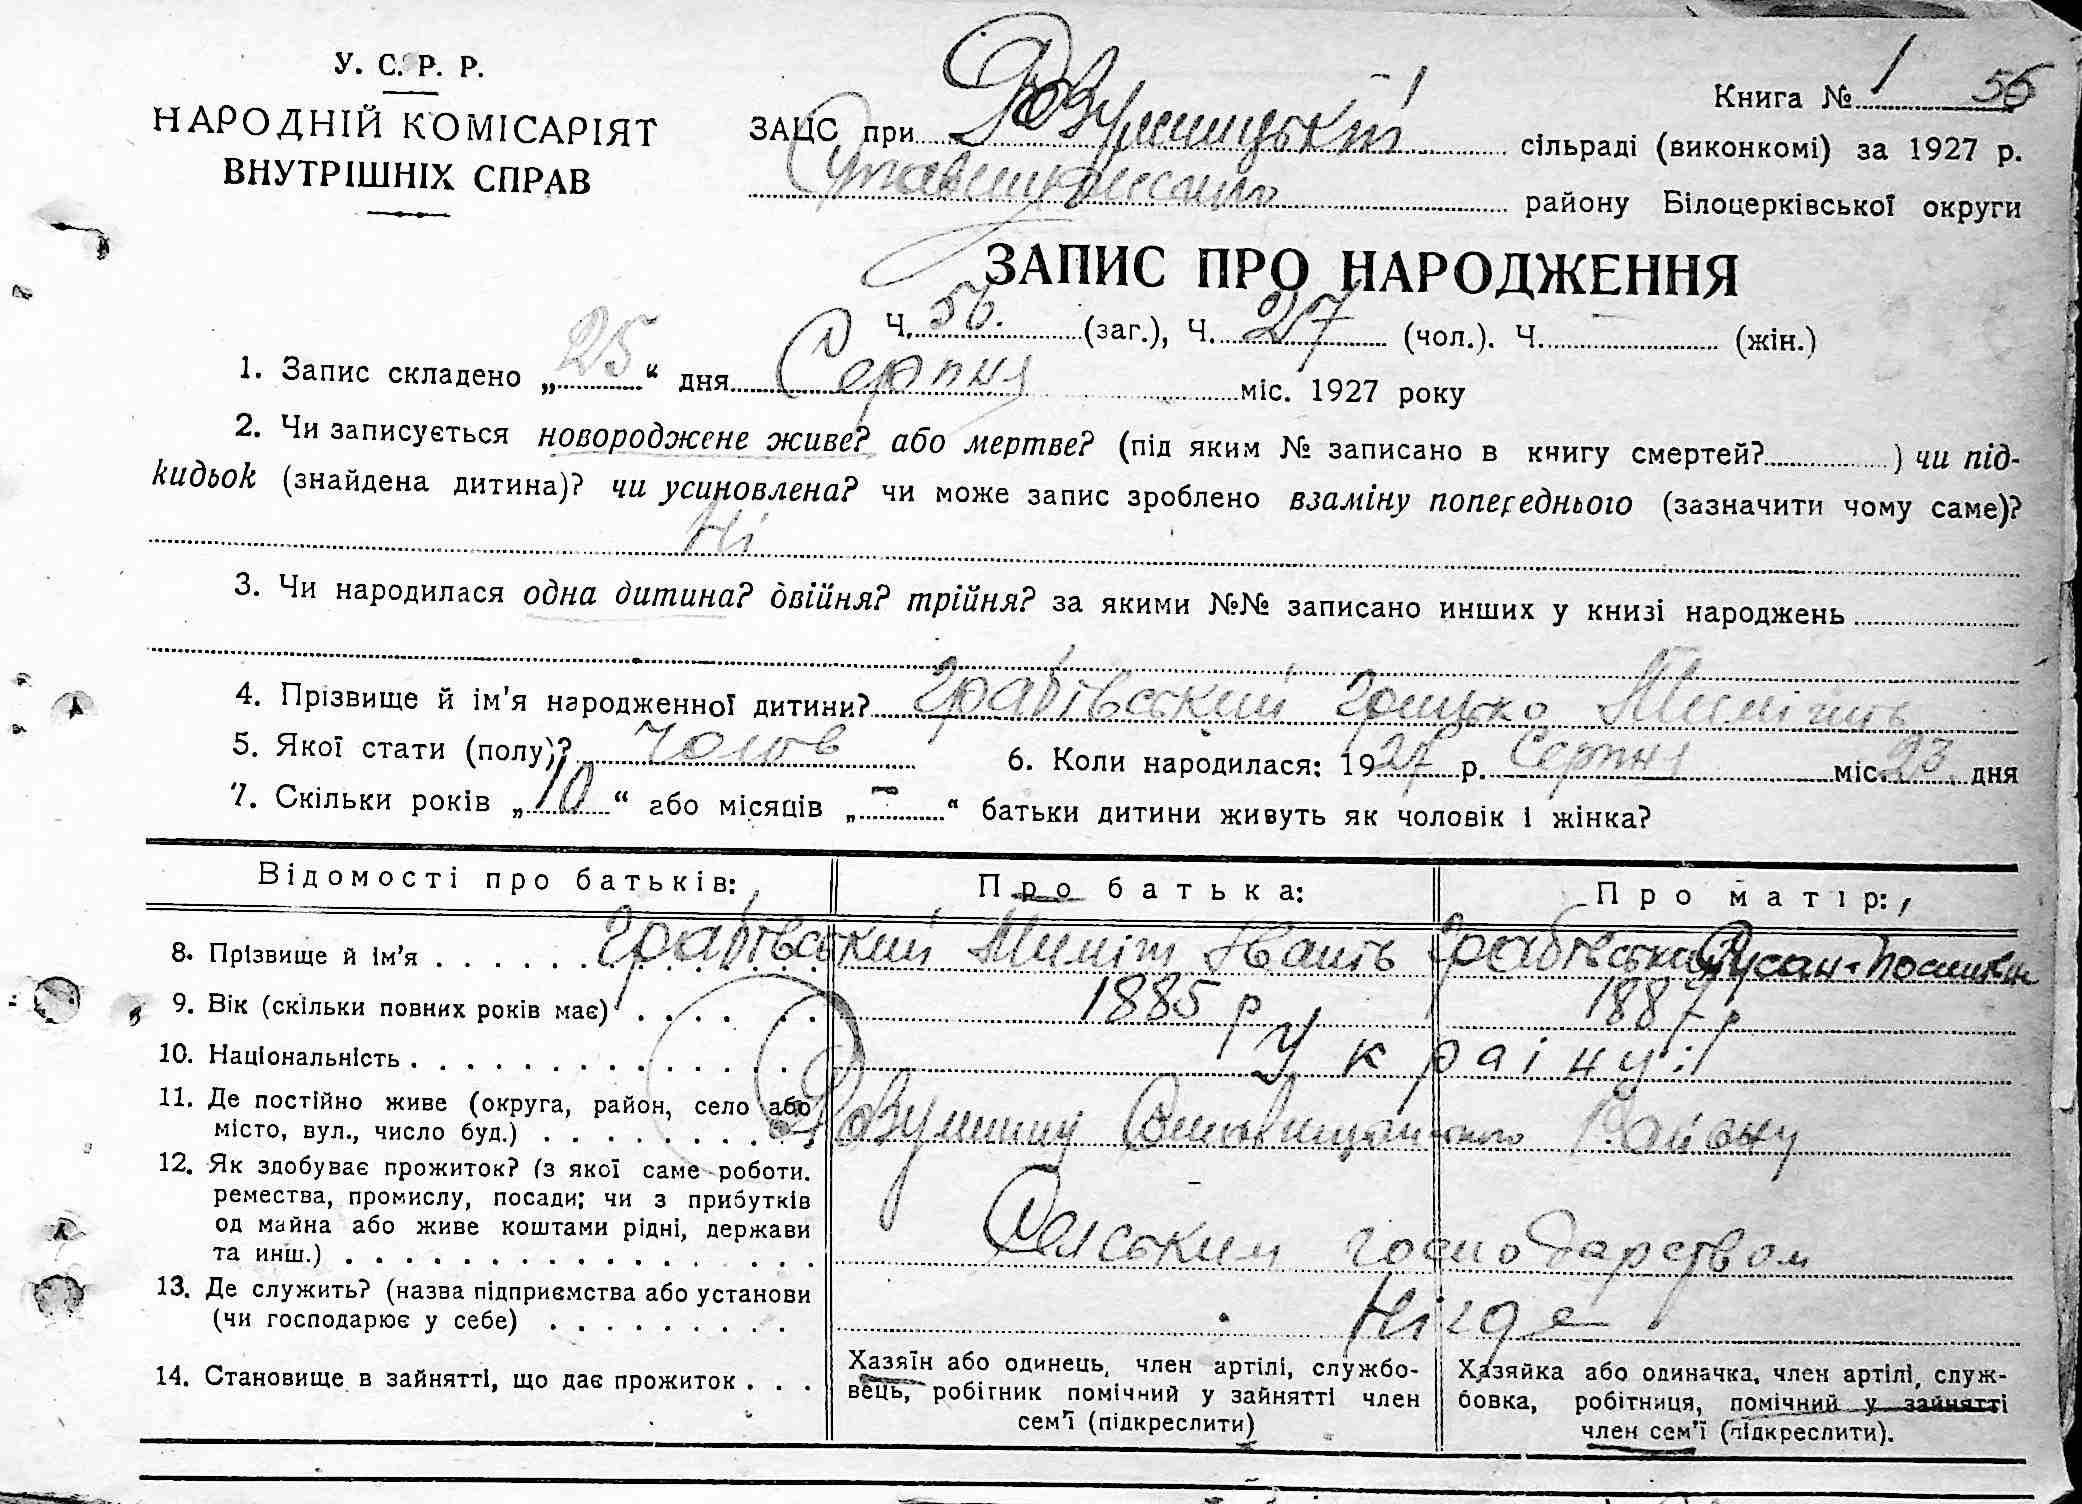 У. С. Р. Р.
НАРОДНІЙ КОМІСАРІЯТ
ВНУТРІШНІХ СПРАВ
Книга № 1 56
ЗАЦС при сільраді (виконкомі) за 1927 р.
району Білоцерківської округи
ЗАПИС ПРО НАРОДЖЕННЯ
Ч. 56. (заг.), Ч. 27 (чол.). Ч. – (жін.)
1. Запис складено „25“ дня Серпня міс. 1927 року
2. Чи записується новороджене живе? або мертве? (під яким № записано в книгу смертей? ) чи під-
кидьок (знайдена дитина)? чи усиновлена? чи може запис зроблено взаміну попереднього (зазначити чому саме)?
Ні
3. Чи народилася одна дитина? двійня? трійня? за якими №№ записано инших у книзі народжень
4. Прізвище й ім'я народженної дитини? Грабівський Грицько
5. Якої стати (полу)? Чолов 6. Коли народилася: 1927 р. Серпня міс. 23 дня
7. Скільки років „10“ або місяців „–“ батьки дитини живуть як чоловік і жінка?
Відомості про батьків: Про батька: Про матір:
8. Прізвище й ім'я Грабівський Іванів Грабівська
9. Вік (скільки повних років має) 1885 р 1887 р
10. Національність Україну
11. Де постійно живе (округа, район, село або
місто, вул., число буд.) Району
12. Як здобуває прожиток? (з якої саме роботи.
ремества, промислу, посади; чи з прибутків
од майна або живе коштами рідні, держави
та инш.) Сільським господарством
13. Де служить? (назва підприємства або установи
(чи господарює у себе) Нігде
14. Становище в зайнятті, що дає прожиток
Хазяїн або одинець, член артілі, службо-
вець, робігник помічний у зайнятті член
сем'ї (підкреслити)
Хазяйка або одиначка, член артілі, служ-
бовка, робітниця, помічний у зайнятті
член сем'ї (підкреслити).